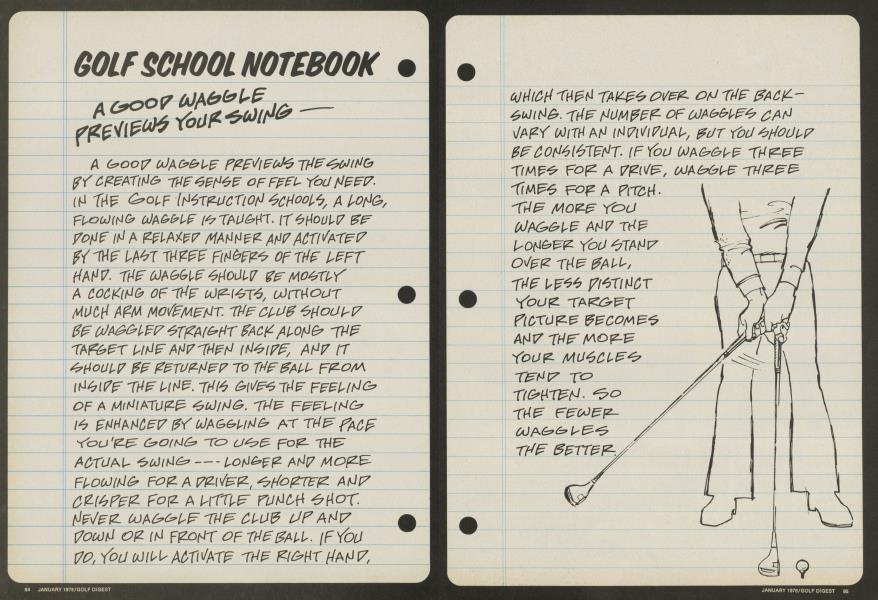 GOLF SCHOOL NOTEBOOK
A GOOD WAGGLE
PREVIEWS YOUR SWING —
A GOOD WAGGLE PREVIEWS THE SWING
BY CREATING THE SENSE OF FEEL YOU NEED.
IN THE GOLF INSTRUCTION SCHOOLS, A LONG,
FLOWING WAGGLE IS TAUGHT. IT SHOULD BE
DONE IN A RELAXED MANNER AND ACTIVATED
BY THE LAST THREE FINGERS OF THE LEFT
HAND. THE WAGGLE SHOULD BE MOSTLY
A COCKING OF THE WRISTS, WITHOUT
MUCH ARM MOVEMENT. THE CLUB SHOULD
BE WAGGLED STRAIGHT BACK ALONG THE
TARGET LINE AND THEN INSIDE, AND IT
SHOULD BE RETURNED TO THE BALL FROM
INSIDE THE LINE. THIS GIVES THE FEELING
OF A MINIATURE SWING. THE FEELING
IS ENHANCED BY WAGGLING AT THE PACE
YOU'RE GOING TO USE FOR THE
ACTUAL SWING --- LONGER AND MORE
FLOWING FOR A DRIVER, SHORTER AND
CRISPER FOR A LITTLE PUNCH SHOT.
NEVER WAGGLE THE CLUB UP AND
DOWN OR IN FRONT OF THE BALL. IF YOU
DO, YOU WILL ACTIVATE THE RIGHT HAND,
84 JANUARY 1978/GOLF DIGEST
WHICH THEN TAKES OVER ON THE BACK-
SWING. THE NUMBER OF WAGGLES CAN
VARY WITH AN INDIVIDUAL, BUT YOU SHOULD
BE CONSISTENT. IF YOU WAGGLE THREE
TIMES FOR A DRIVE, WAGGLE THREE
TIMES FOR A PITCH.
THE MORE YOU
WAGGLE AND THE
LONGER YOU STAND
OVER THE BALL,
THE LESS DISTINCT
YOUR TARGET
PICTURE BECOMES
AND THE MORE
YOUR MUSCLES
TEND TO
TIGHTEN. SO
THE FEWER
WAGGLES
THE BETTER.
JANUARY 1978/GOLF DIGEST 85